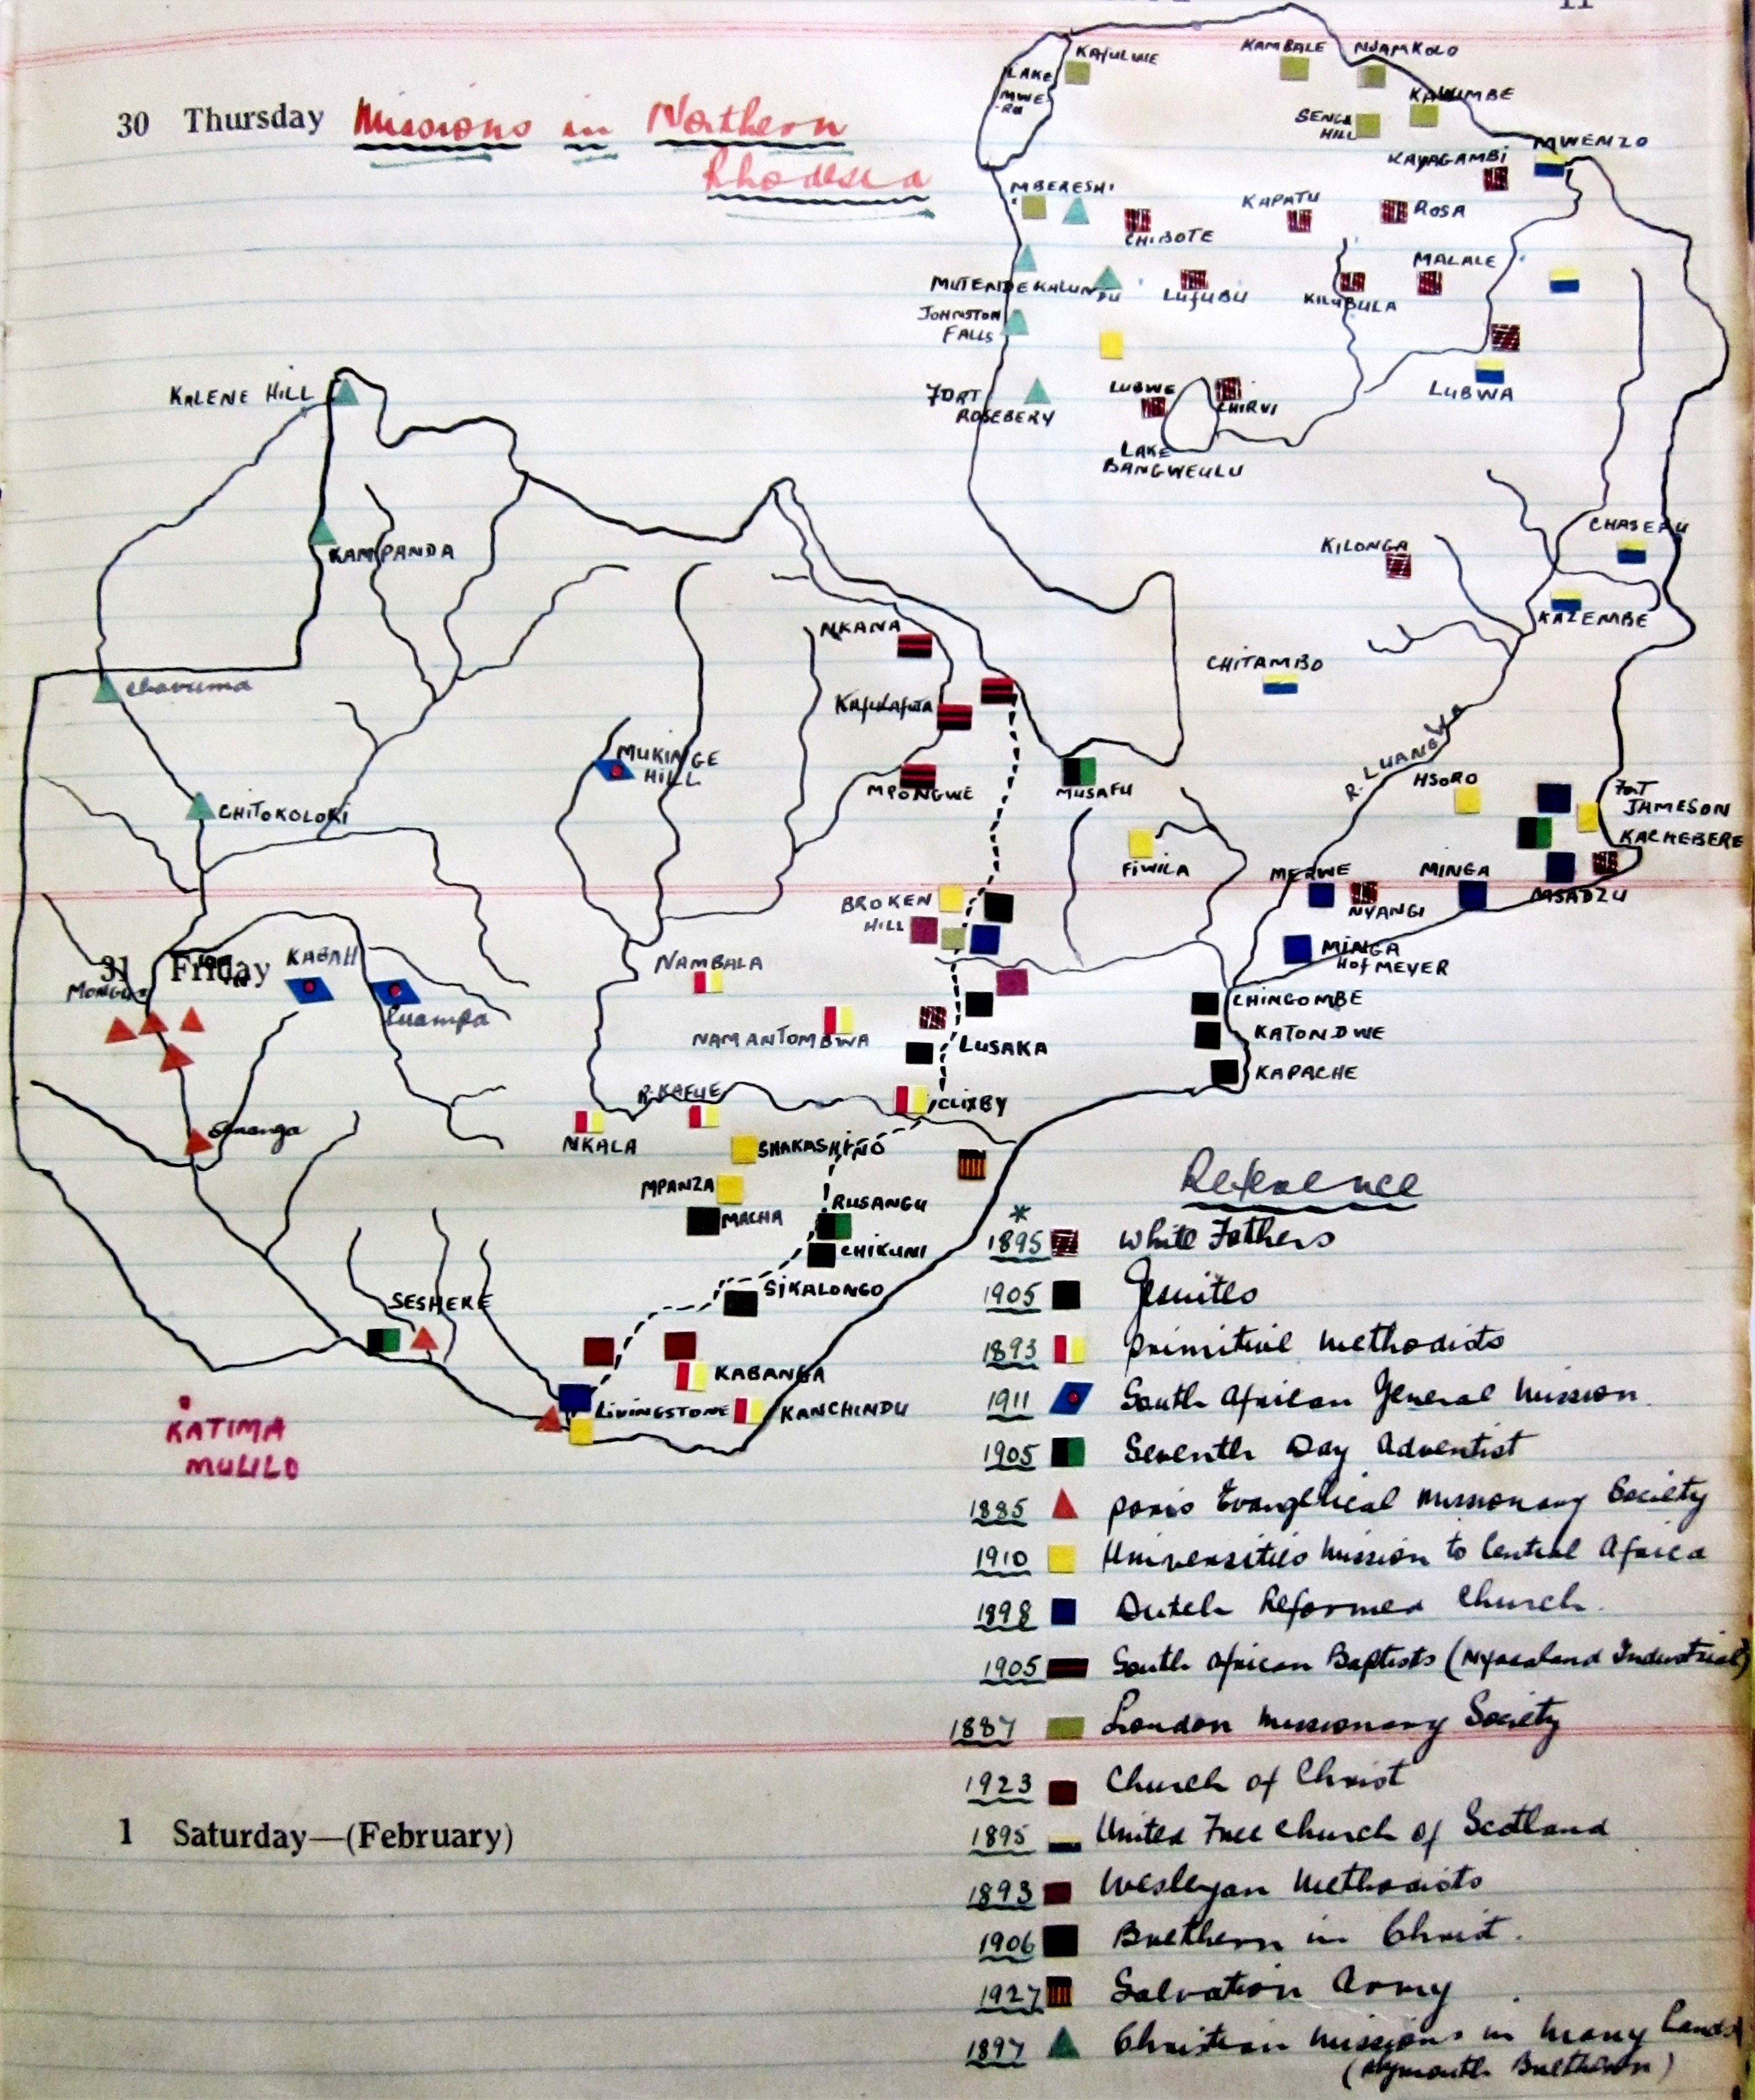 11
30 Thursday Missions in Northern
Rhodesia
KAMBALE
KAFULWE
LAKE
MWE
-RU
SENGA
HILL
MWENZO
KAYAGAMBI
MBERESHI
KAPATU
ROSA
CHIBOTE
MALALE
MUTENDE KALUNDU
LUFUBU
KILUBULA
JOHNSTON
FALLS
KALENE HILL
FORT
ROSEBERY
LUBWE
LUBWA
LAKE
BANGWEULU
KAMPANDA
KILONGA
KAZEMBE
NKANA
CHITAMBO
Chavuma
Kafulafuta
MUKINGE
HILL
R. LUANGWA
MPONGWE
MUSAFU
Fort
JAMESON
CHITOKOLOKI
KACHEBERE
FIWILA
MINGA
MSADZU
NYANGI
BROKEN
HILL
MINGA
Hof MEYER
NAMBALA
31 Friday
Luampa
CHINGOMBE
NAMANTOMBWA
LUSAKA
KATONDWE
KAPACHE
R. KAFUE
CLIXBY
NKALA
MPANZA
RUSANGU
MACHA
CHIKUNI
SIKALONGO
SESHEKE
KABANGA
LIVINGSTONE
KANCHINDU
KATIMA
MULILO
Reference
*
1895 White Fathers
1905 Jesuites
1893 Primitive Methodists
1911 South African General Mission
1905 Seventh Day Adventist
1885 Paris Evangelical Missionary Society
1910 Universities Mission to Central Africa
1898 Dutch Reformed Church.
1905 South African Baptists (Nyasaland Industrial)
1887 London Missionary Society
1923 Church of Christ
1 Saturday—(February)
1895 United Free Church of Scotland
1893 Wesleyan Methodists
1906 Brethern in Christ.
1927 Salvation Army
1897 Christian Missions in Many Lands
(Plymouth Brethern)